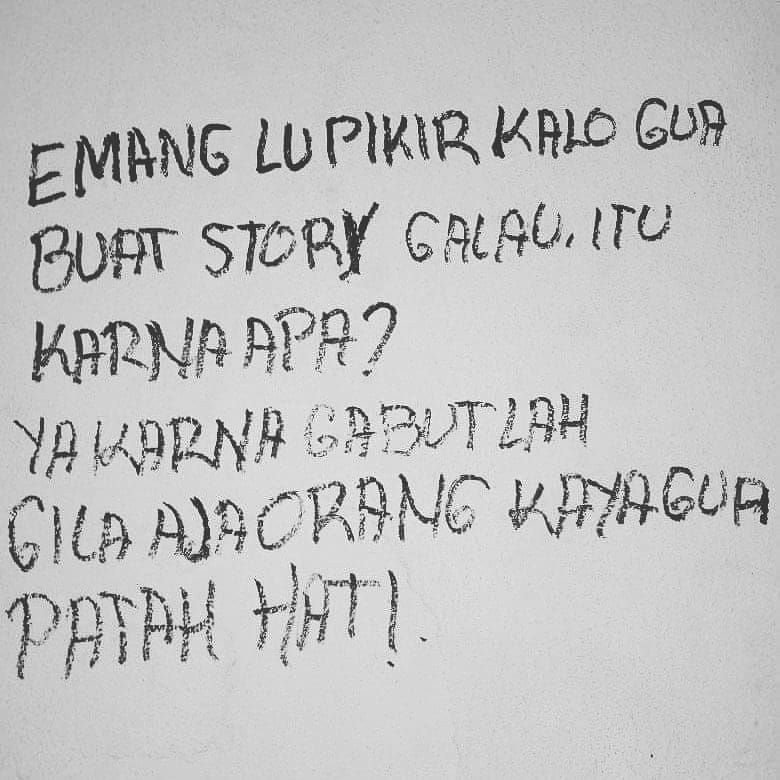 EMANG LU PIKIR KALO GUA
BUAT STORY GALAU. ITU
KARNA APA?
YA KARNA GABUT LAH
GILA AJA ORANG KAYA GUA
PATAH HATI.